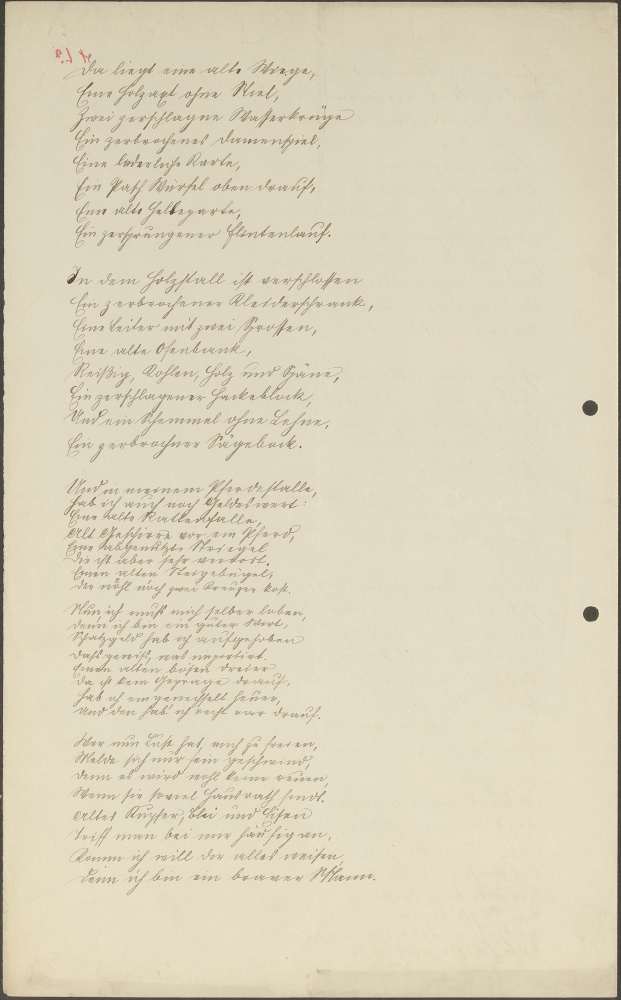 Da liegt eine alte Wiege,
Eine Holzaxt ohne Stiel,
Zwei zerschlagne Wasserkrüge
Ein zerbrochenes Damenspiel,
Eine liederliche Karte,
Ein Pasch Würfel oben drauf,
Eine alte Helleparte,
Ein zersprungener Flintenlauf.
In dem Holzstall ist verschlossen
Ein zerbrochener Kleiderschrank,
Eine Leiter mit zwei Sprossen,
Eine alte Ofenbank,
Reißig, Kohlen, Holz und Späne,
Ein zerschlagener Hackeblock,
Und ein Schemmel ohne Lehne,
Ein zerbrochner Sägebock.
Und in meinem Pferdestalle,
Hab ich auch noch Geldeswert:
Eine alte Rattenfalle,
Alt Geschirre vor ein Pferd,
Eine abgenutzte Striegel
Die ist aber sehr verrost.
Einen alten Steigebügel,
Der wohl noch zwei Kreuzer kost.
Nun, ich muß mich selber loben,
Denn ich bin ein guter Wirt,
Schatzgeld hab ich aufgehoben
Daß gewiß, was
Einen alten bösen Dreier
Da ist kein Gepräge drauf,
Hab ich eingewechselt heuer,
Und den hab' ich recht rar drauf.
Wer nun Lust hat, mich zu freien,
Melde sich nur fein geschwind,
Denn es wird wohl keine reuen,
Wenn sie soviel Hausrath find't.
Altes Kupfer, Blei und Eisen
Trifft man bei mir häufig an,
Komm ich will dir alles weisen,
Denn ich bin ein braver Mann.